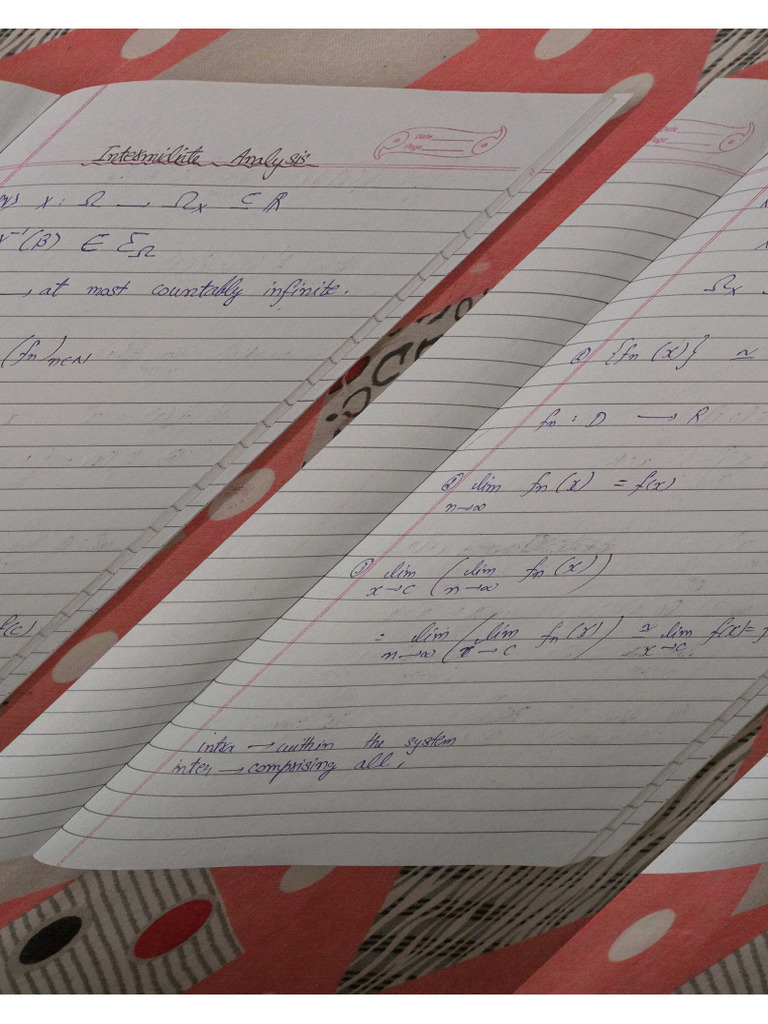 Intermidiate Analysis
Date
Page
x : Ω → Ωx ⊆ R
x⁻¹(β) ∈ ΣΩ
→ at most countably infinite.
(fn)n∈N
f(c)
Date
Page
Ωx
② {fn (x)} ≃
fn : D → R
② lim n→∞ fn (x) = f(x)
③ lim x→c ( lim n→∞ fn (x) )
= lim n→∞ ( lim x→c fn (x) ) ≃ lim x→c f(x) =
intra → within the system
inter → comprising all,